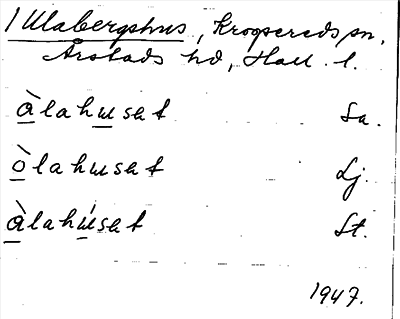 / Ulabergshus, Krogsereds sn,
Årstads hd, Hall. l.
àlahusat Sa.
òlahusat Lj.
àlahúsat St.
1947.